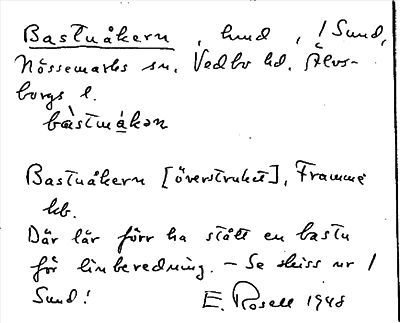 Bastuåkern, hmd, 1 Sund,
Nössemarks sn. Vedbo hd. Älvs-
borgs l.
bàstuákən
Bastuåkern [överstruket], Framme
hb.
Där lär förr ha stått en bastu
för linberedning. – Se skiss nr 1
Sund! E. Rosell 1948